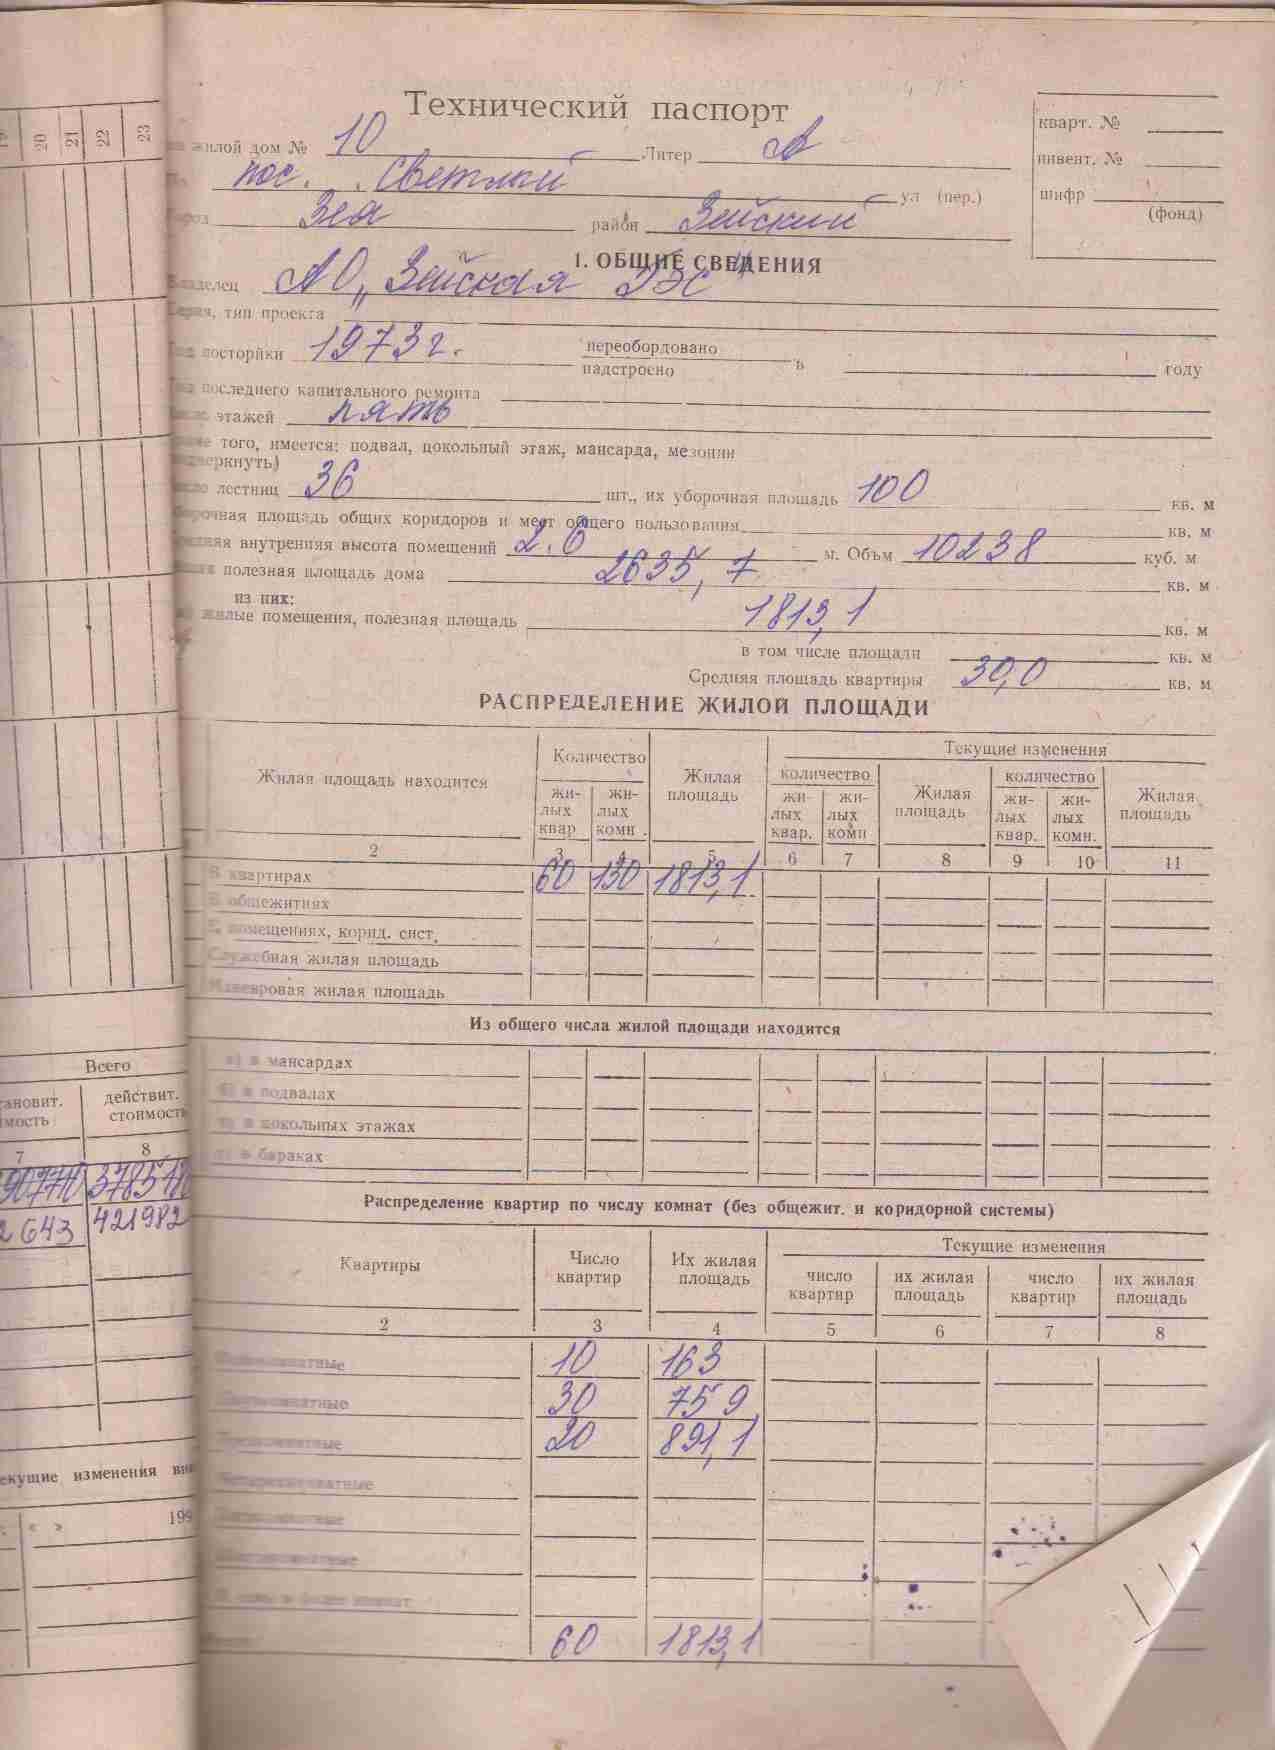 Технический паспорт
жилой дом № 10 Литер А
кварт. №
инвент. №
шифр
(фонд)
пос. Светлый ул (пер.)
Зея район Зейский
I. ОБЩИЕ СВЕДЕНИЯ
Владелец АО „Зейская ГЭС"
Серия, тип проекта
посторйки 1973 г. переобордовано
надстроено в году
последнего капитального ремонта
этажей пять
того, имеется: подвал, цокольный этаж, мансарда, мезонин
лестниц 36 шт., их уборочная площадь 100 кв. м
площадь общих коридоров и мест общего пользования кв. м
внутренняя высота помещений 2.6 м. Объм 10238 куб. м
полезная площадь дома 2635,7 кв. м
из них:
жилые помещения, полезная площадь 1813,1 кв. м
в том числе площади кв. м
Средняя площадь квартиры 30,0 кв. м
РАСПРЕДЕЛЕНИЕ ЖИЛОЙ ПЛОЩАДИ
Жилая площадь находится Количество Жилая площадь Текущие изменения
количество Жилая площадь количество Жилая площадь
жи-лых квар жи-лых комн. жи-лых квар. жи-лых комн жи-лых квар. жи-лых комн.
2 3 4 5 6 7 8 9 10 11
В квартирах 60 130 1813,1
В общежитиях
помещениях, корид. сист.
Служебная жилая площадь
Маневровая жилая площадь
Из общего числа жилой площади находится
а) в мансардах
б) в подвалах
в) в цокольных этажах
г) в бараках
Распределение квартир по числу комнат (без общежит. и коридорной системы)
Квартиры Число квартир Их жилая площадь Текущие изменения
число квартир их жилая площадь число квартир их жилая площадь
2 3 4 5 6 7 8
10 163
30 759
20 891,1
60 1813,1
20 21 22 23
Всего
действит. стоимость
7 8
421982
изменения
199